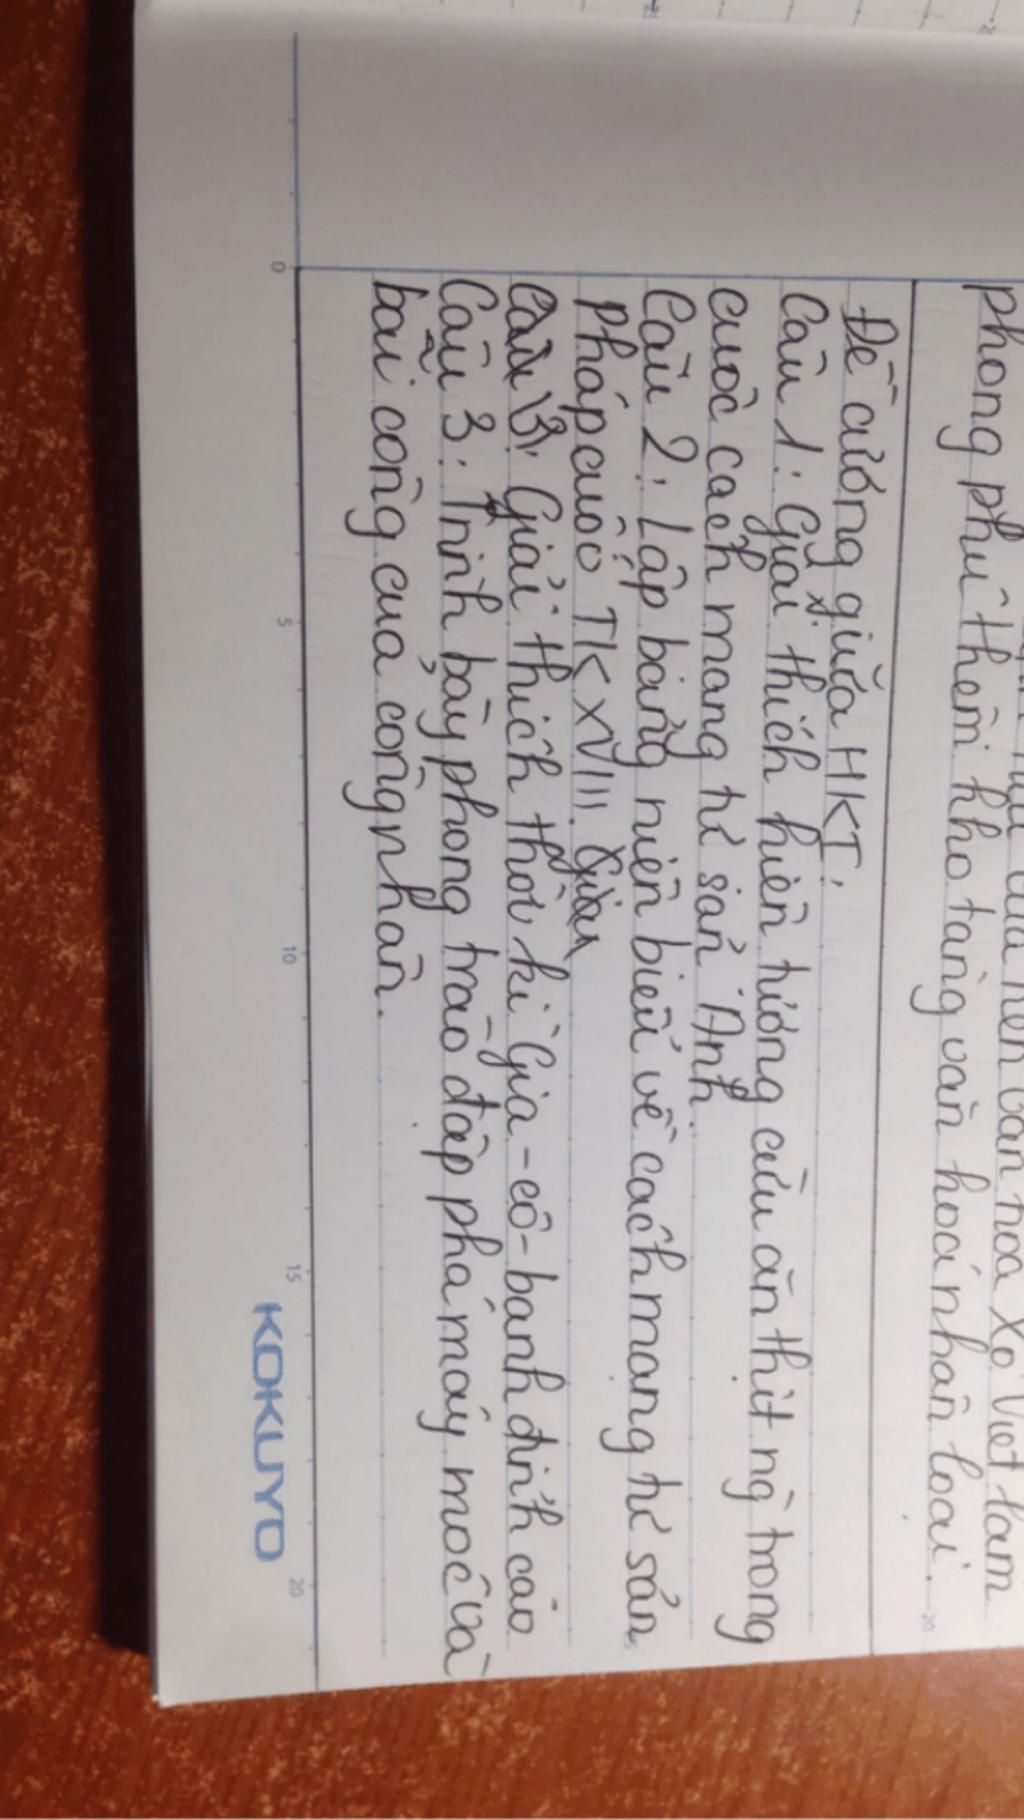 phong phú thêm kho tàng văn hoá nhân loại.
Đề cương giữa HKI.
Câu 1: Giải thích hiện tượng cừu ăn thịt ng` trong
cuộc cách mạng tư sản Anh.
Câu 2: Lập bảng niên biểu về cách mạng tư sản
Pháp cuối TK XVIII. Giải
Câu 3: Giải thích thời kì Gia-cô-banh đỉnh cao
Câu 3: Trình bày phong trào đập phá máy móc và
bãi công của công nhân.
KOKUYO
0
5
10
15
20
20